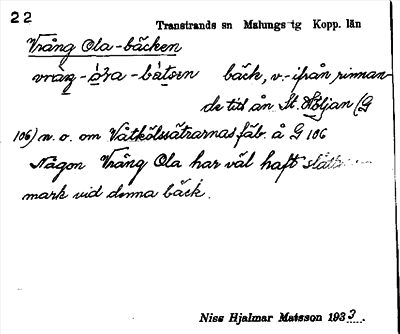 22
Transtrands sn Malungs tg Kopp. län
Vrång Ola-bäcken
bäck, v.-ifrån rinnan-
de till ån St. Höljan (G
106) n.o. om Våtkölssätrarnas fäb. å G 106
Någon Vrång Ola har väl haft slåtter-
mark vid denna bäck.
Niss Hjalmar Matsson 1933.